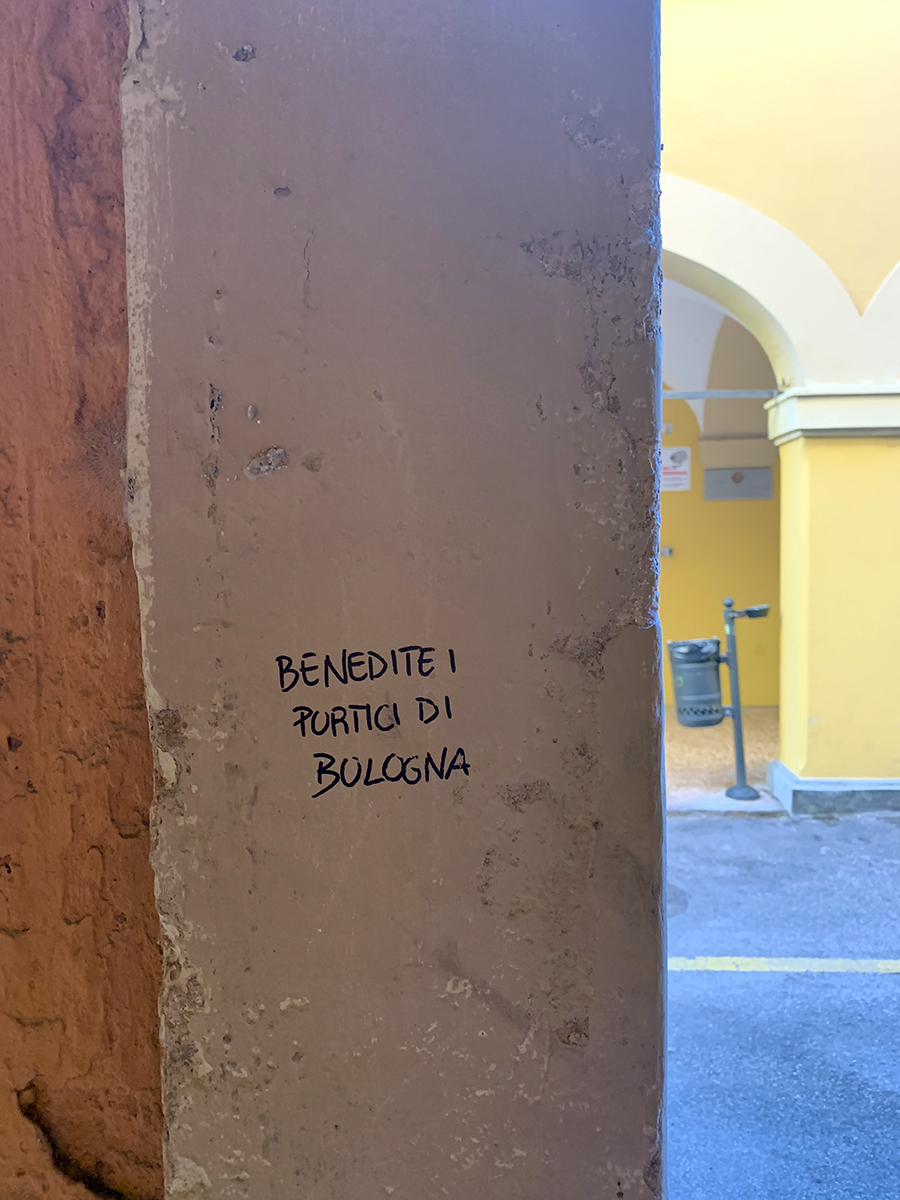 BENEDITE I
PORTICI DI
BOLOGNA